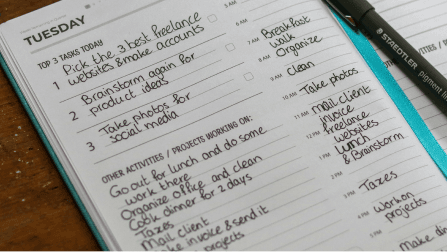 TUESDAY
TOP 3 TASKS TODAY
1 Pick the 3 best freelance
websites & make accounts
2 Brainstorm again for
product ideas
3 Take photos for
social media
OTHER ACTIVITIES / PROJECTS WORKING ON:
Go out for lunch and do some
work there
Organize office and clean
Cook dinner for 2 days
Taxes
Mail client
invoice & send it
projects
6 AM
7 AM Breakfast
walk
8 AM Organize
9 AM clean
10 AM Take photos
11 AM mail client
invoice
12 PM freelance
websites
1 PM Lunch
& Brainstorm
2 PM
3 PM Taxes
4 PM Work on
projects
Make
STAEDTLER
pigment liner